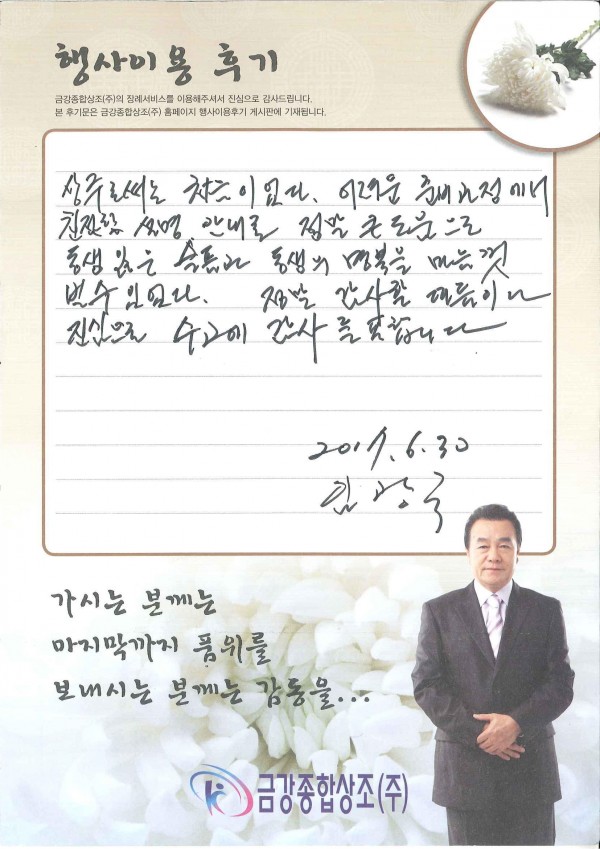 행사이용 후기
금강종합상조(주)의 장례서비스를 이용해주셔서 진심으로 감사드립니다.
본 후기문은 금강종합상조(주) 홈페이지 행사이용후기 게시판에 기재됩니다.
상주로써는 처음이 없다. 어려운 준비과정에서
친절한 설명, 안내로 정말 큰 도움으로
동생 잃은 슬픔과 동생의 명복을 비는
정말 감사할 따름이나
진심으로 수고에 감사를 표합니다
6.30
가시는 분께는
마지막까지 품위를
보내시는 분께는 감동을...
금강종합상조(주)